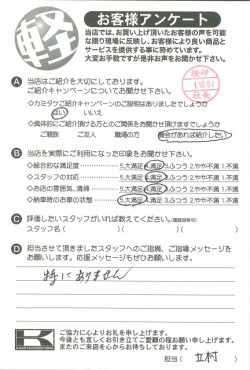 軽
お客様アンケート
当店では、お買い求め頂いたお客様の声を可能
な限り現場に反映し、お客様により良い商品と
サービスを提供する事に努めています。
大変お手数ですが是非お声をお聞かせ下さい。
検印
1.10.04
社長
A 当店はご紹介を大切にしております。
ご紹介キャンペーンについてお聞かせ下さい。
・カミタケご紹介キャンペーンのご説明はありましたでしょうか
はい いいえ
・具体的にご紹介頂ける方とのご関係をお聞かせ頂けますでしょうか
ご親族 ご友人 職場の方 機会があれば紹介したい
B 当店を実際にご利用になった印象をお聞かせ下さい。
◇総合的な満足度 5.大満足 4.満足 3.ふつう 2.やや不満 1.不満
◇スタッフの対応 5.大満足 4.満足 3.ふつう 2.やや不満 1.不満
◇お店の雰囲気、清掃 5.大満足 4.満足 3.ふつう 2.やや不満 1.不満
◇納車時のお車の状態 5.大満足 4.満足 3.ふつう 2.やや不満 1.不満
C 評価したいスタッフがいれば教えてください。
スタッフ名( )( )( )
D 担当させて頂きましたスタッフへのご指摘、ご指導メッセージを
お願いします。応援メッセージもぜひお願いします。
特にありません
K
ご協力に心よりお礼を申し上げます。
今後とも宜しくお引き立てご愛顧の程お願い申し上げます。
またのご来店を心からお待ちしております。
担当( 立村 )